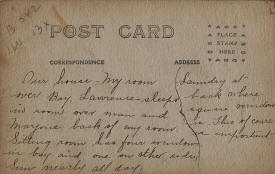 B 562
POST CARD
PLACE
STAMP
HERE
CORRESPONDENCE
ADDRESS
Our house - My room
over Bay, Lawrence sleeps
in room over man and
Marjorie back of my room.
Sitting room has four windows
in bay and one on other side.
Sun nearly all day.
Laundry at
back where
square window
is. This of course
is important